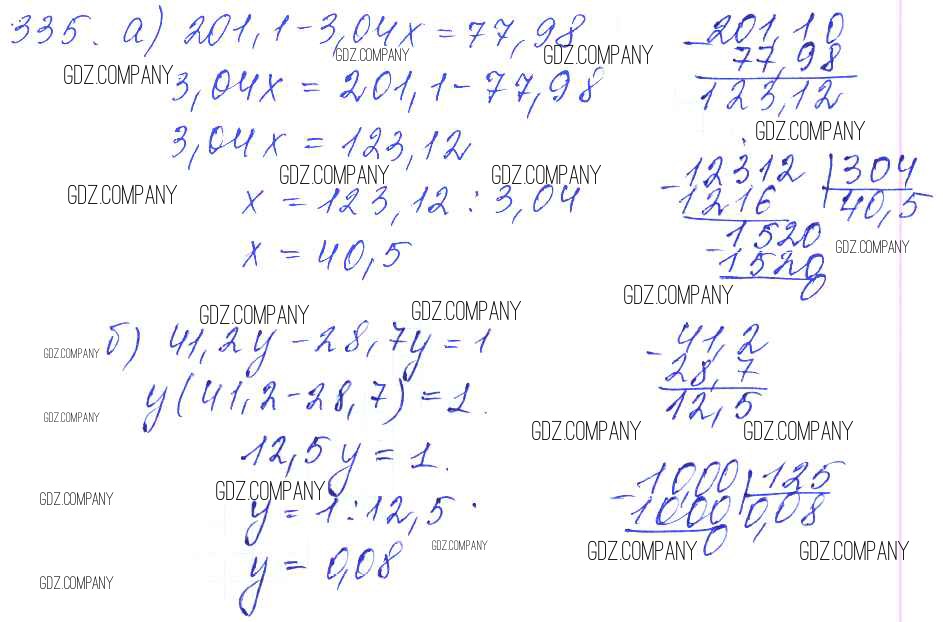 335. а) 201,1 - 3,04x = 77,98
GDZ.COMPANY
GDZ.COMPANY
GDZ.COMPANY
3,04x = 201,1 - 77,98
3,04x = 123,12
GDZ.COMPANY
GDZ.COMPANY
GDZ.COMPANY
x = 123,12 : 3,04
x = 40,5
- 201,10
77,98
123,12
GDZ.COMPANY
- 12312 | 304
1216 40,5
- 1520
GDZ.COMPANY
1520
0
GDZ.COMPANY
GDZ.COMPANY
GDZ.COMPANY
GDZ.COMPANY
б) 41,2y - 28,7y = 1
y(41,2 - 28,7) = 1.
GDZ.COMPANY
12,5y = 1.
GDZ.COMPANY
GDZ.COMPANY
y = 1 : 12,5
GDZ.COMPANY
y = 0,08
GDZ.COMPANY
- 41,2
28,7
12,5
GDZ.COMPANY
GDZ.COMPANY
- 10,00 | 125
1000 0,08
0
GDZ.COMPANY
GDZ.COMPANY